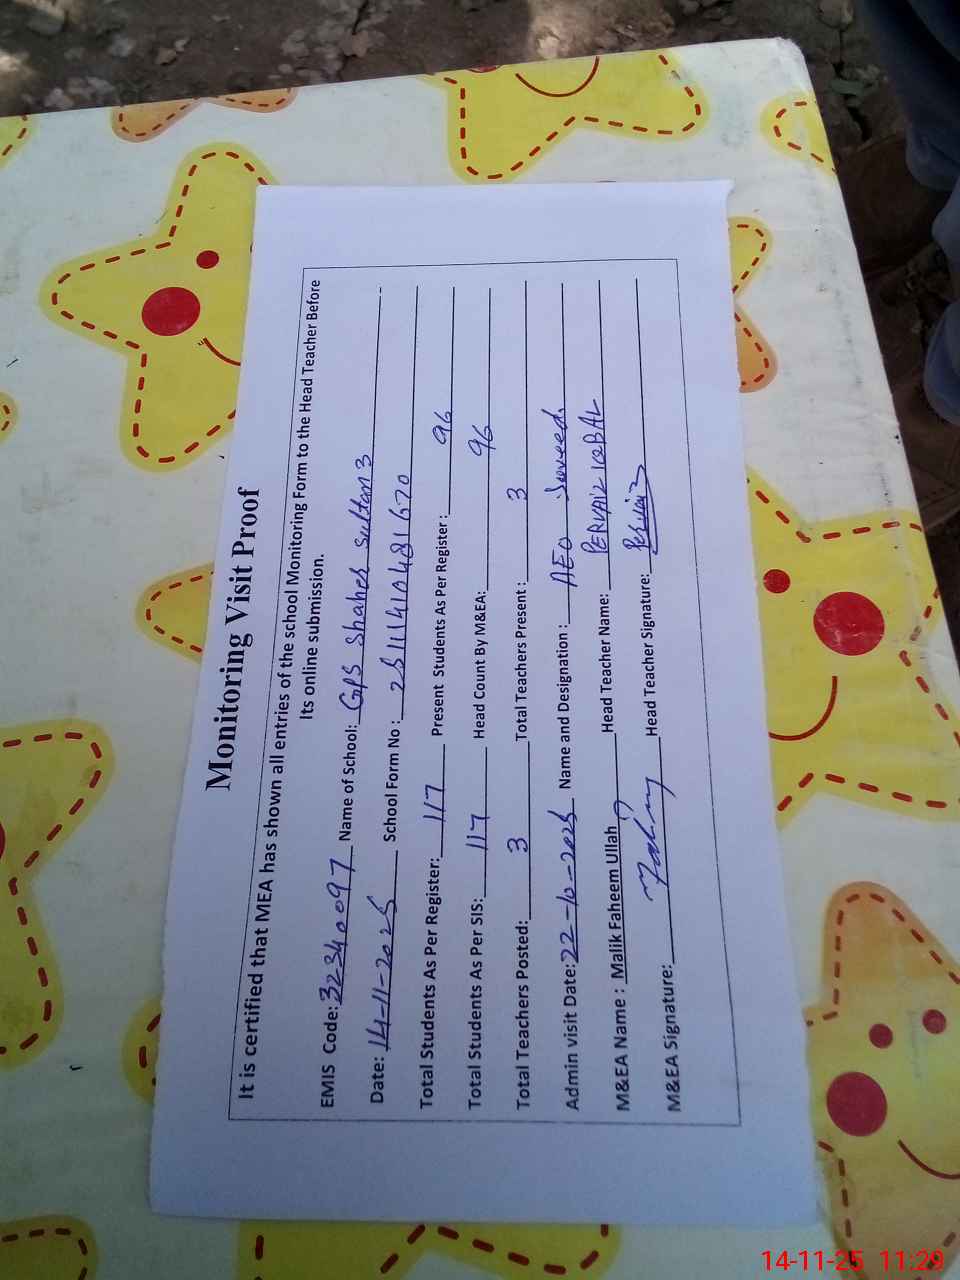 Monitoring Visit Proof
It is certified that MEA has shown all entries of the school Monitoring Form to the Head Teacher Before
Its online submission.
EMIS Code: 32340097 Name of School: GPS Shaher Sultan 3
Date: 14-11-2025 School Form No :
Total Students As Per Register: 117 Present Students As Per Register : 96
Total Students As Per SIS: 117 Head Count By M&EA: 96
Total Teachers Posted: 3 Total Teachers Present : 3
Admin visit Date: 22-10-2025 Name and Designation : AEO Javeed.
M&EA Name : Malik Faheem Ullah Head Teacher Name: PERVAIZ IQBAL
M&EA Signature: Fahim Head Teacher Signature: Pervaiz
14-11-25 11:29